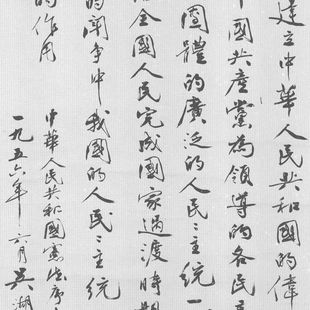 建立中華人民共和國的偉
中國共產黨為領導的各民主
團體的廣泛的人民民主統一
全國人民完成國家過渡時期
的鬥爭中我國的人民民主統
的作用
中華人民共和國憲法序
一九五六年六月吳湖